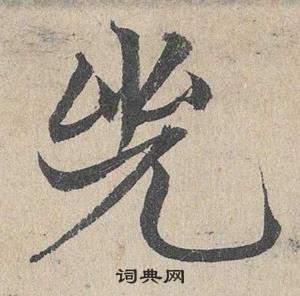 光
词典网